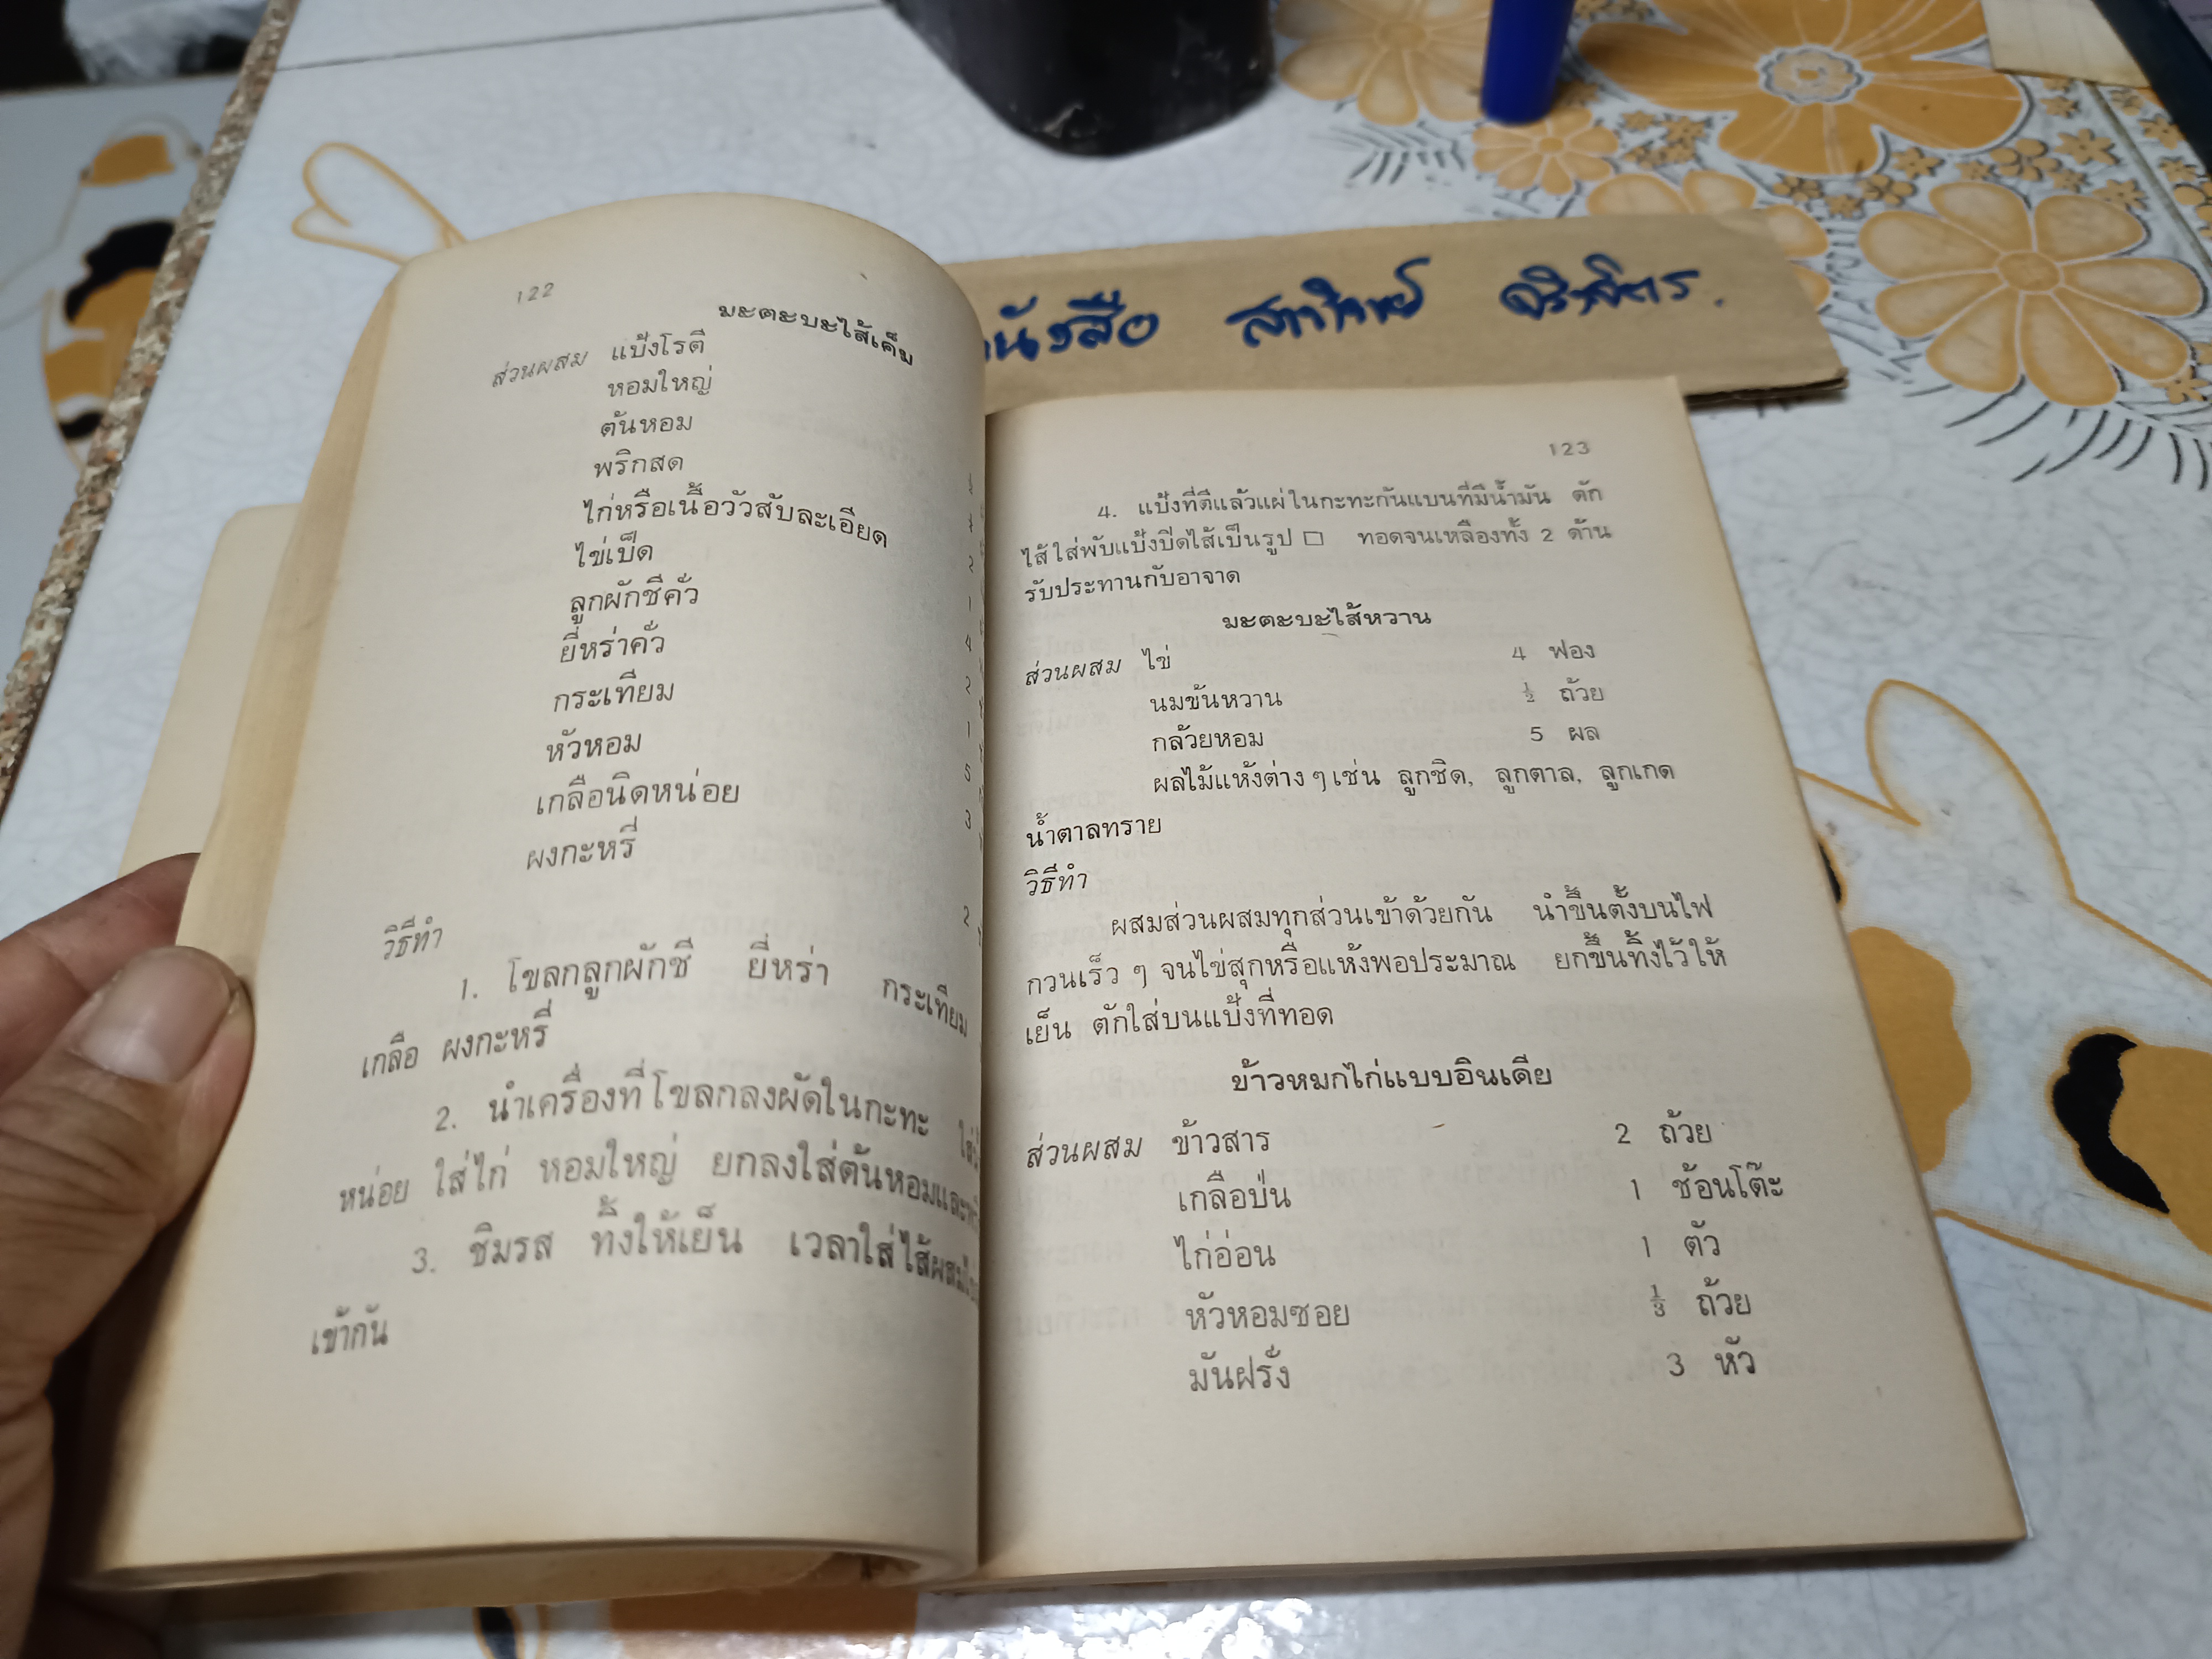 122
มะตะบะไส้เค็ม
ส่วนผสม แป้งโรตี
หอมใหญ่
ต้นหอม
พริกสด
ไก่หรือเนื้อวัวสับละเอียด
ไข่เป็ด 2
ลูกผักชีคั่ว 1
ยี่หร่าคั่ว 4
กระเทียม 2
หัวหอม 1
เกลือนิดหน่อย 5
ผงกะหรี่ 3
2
วิธีทำ
1. โขลกลูกผักชี ยี่หร่า กระเทียม
เกลือ ผงกะหรี่
2. นำเครื่องที่โขลกลงผัดในกะทะ
หน่อย ใส่ไก่ หอมใหญ่ ยกลงใส่ต้นหอมและ
3. ชิมรส ทิ้งให้เย็น เวลาใส่ไส้ผสม
เข้ากัน
หนังสือ
123
4. แป้งที่ตีแล้วแผ่ในกะทะก้นแบนที่มีน้ำมัน ตัก
ไส้ใส่พับแป้งปิดไส้เป็นรูป □ ทอดจนเหลืองทั้ง 2 ด้าน
รับประทานกับอาจาด
มะตะบะไส้หวาน
ส่วนผสม ไข่ 4 ฟอง
นมข้นหวาน ½ ถ้วย
กล้วยหอม 5 ผล
ผลไม้แห้งต่าง ๆ เช่น ลูกชิด, ลูกตาล, ลูกเกด
น้ำตาลทราย
วิธีทำ
ผสมส่วนผสมทุกส่วนเข้าด้วยกัน นำขึ้นตั้งบนไฟ
กวนเร็ว ๆ จนไข่สุกหรือแห้งพอประมาณ ยกขึ้นทิ้งไว้ให้
เย็น ตักใส่บนแป้งที่ทอด
ข้าวหมกไก่แบบอินเดีย
ส่วนผสม ข้าวสาร 2 ถ้วย
เกลือป่น 1 ช้อนโต๊ะ
ไก่อ่อน 1 ตัว
หัวหอมซอย ⅓ ถ้วย
มันฝรั่ง 3 หัว